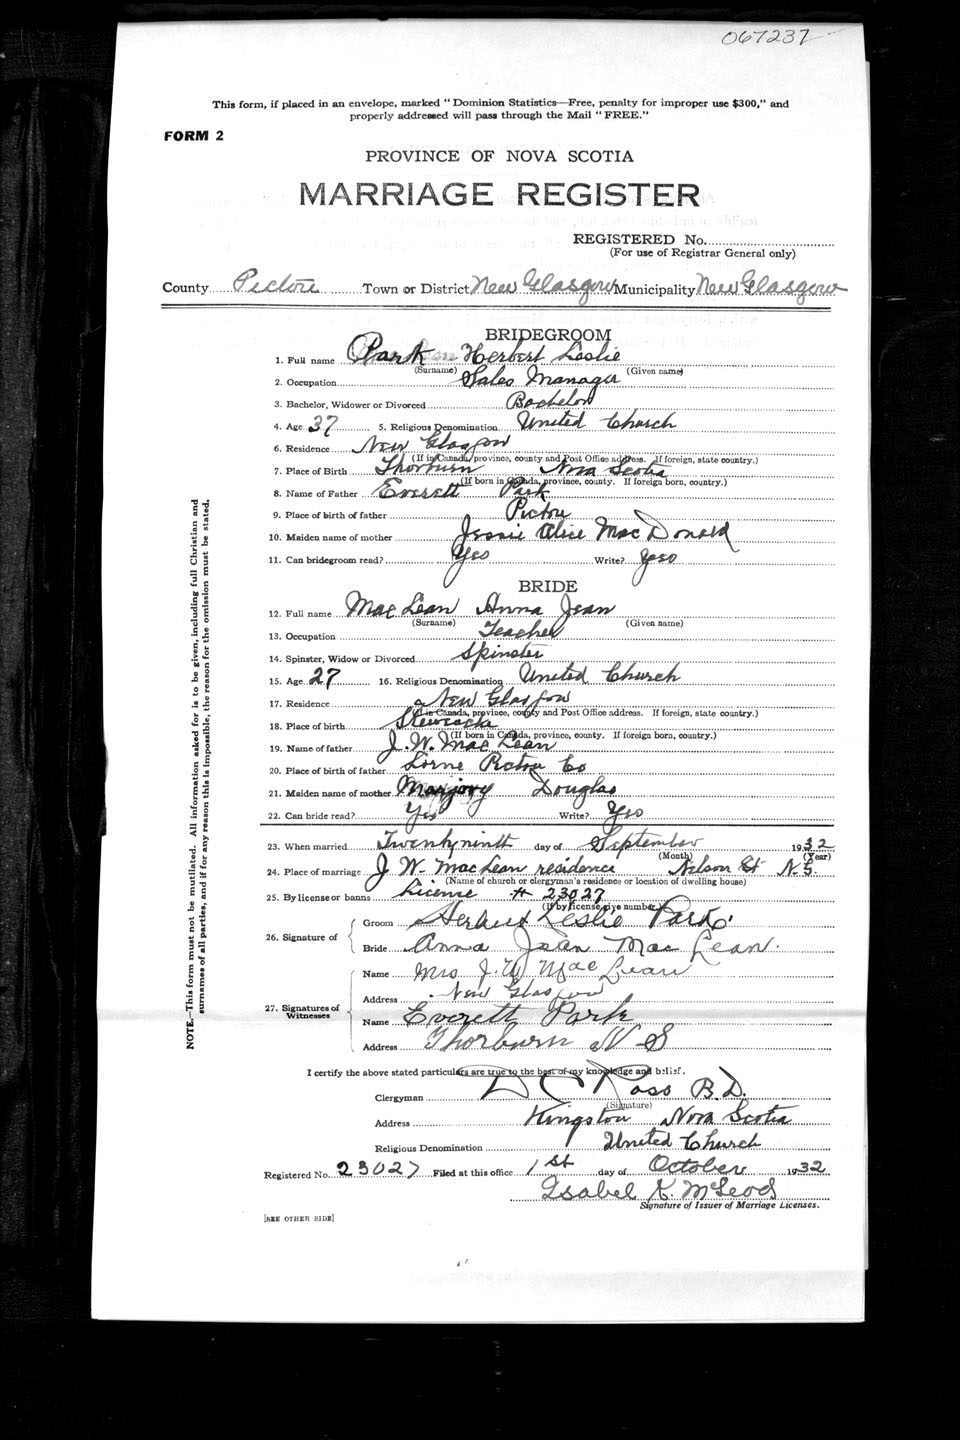 067237
This form, if placed in an envelope, marked "Dominion Statistics—Free, penalty for improper use $300," and
properly addressed will pass through the Mail "FREE."
FORM 2
PROVINCE OF NOVA SCOTIA
MARRIAGE REGISTER
REGISTERED No.
(For use of Registrar General only)
County Pictou Town or District New Glasgow Municipality New Glasgow
BRIDEGROOM
1. Full name Park Herbert Leslie
(Surname) (Given name)
2. Occupation Sales Manager
3. Bachelor, Widower or Divorced Bachelor
4. Age 37 5. Religious Denomination United Church
6. Residence New Glasgow
(If in Canada, province, county and Post Office address. If foreign, state country.)
7. Place of Birth Thorburn Nova Scotia
(If born in Canada, province, county. If foreign born, country.)
8. Name of Father Everett Park
9. Place of birth of father Pictou
10. Maiden name of mother Jessie Alice MacDonald
11. Can bridegroom read? Yes Write? Yes
BRIDE
12. Full name MacLean Anna Jean
(Surname) (Given name)
13. Occupation Teacher
14. Spinster, Widow or Divorced Spinster
15. Age 27 16. Religious Denomination United Church
17. Residence New Glasgow
(If in Canada, province, county and Post Office address. If foreign, state country.)
18. Place of birth Stewiacke
(If born in Canada, province, county. If foreign born, country.)
19. Name of father J. W. MacLean
20. Place of birth of father Lorne Pictou Co
21. Maiden name of mother Marjory Douglas
22. Can bride read? Yes Write? Yes
23. When married Twenty ninth day of September 1932
(Month) (Year)
24. Place of marriage J W. MacLean residence Nelson St N.S.
(Name of church or clergyman's residence or location of dwelling house)
25. By license or banns License # 23027
(If by license, give number)
26. Signature of
Groom Herbert Leslie Park
Bride Anna Jean MacLean.
27. Signatures of Witnesses
Name Mrs J. W MacLean
Address New Glasgow
Name Everett Park
Address Thorburn N S
I certify the above stated particulars are true to the best of my knowledge and belief.
Clergyman D C Ross B.D.
(Signature)
Address Kingston Nova Scotia
Religious Denomination United Church
Registered No. 23027 Filed at this office 1st day of October 1932
Isabel K. McLeod
Signature of Issuer of Marriage Licenses.
[SEE OTHER SIDE]
NOTE.—This form must not be mutilated. All information asked for is to be given, including full Christian and
surnames of all parties, and if for any reason this is impossible, the reason for the omission must be stated.